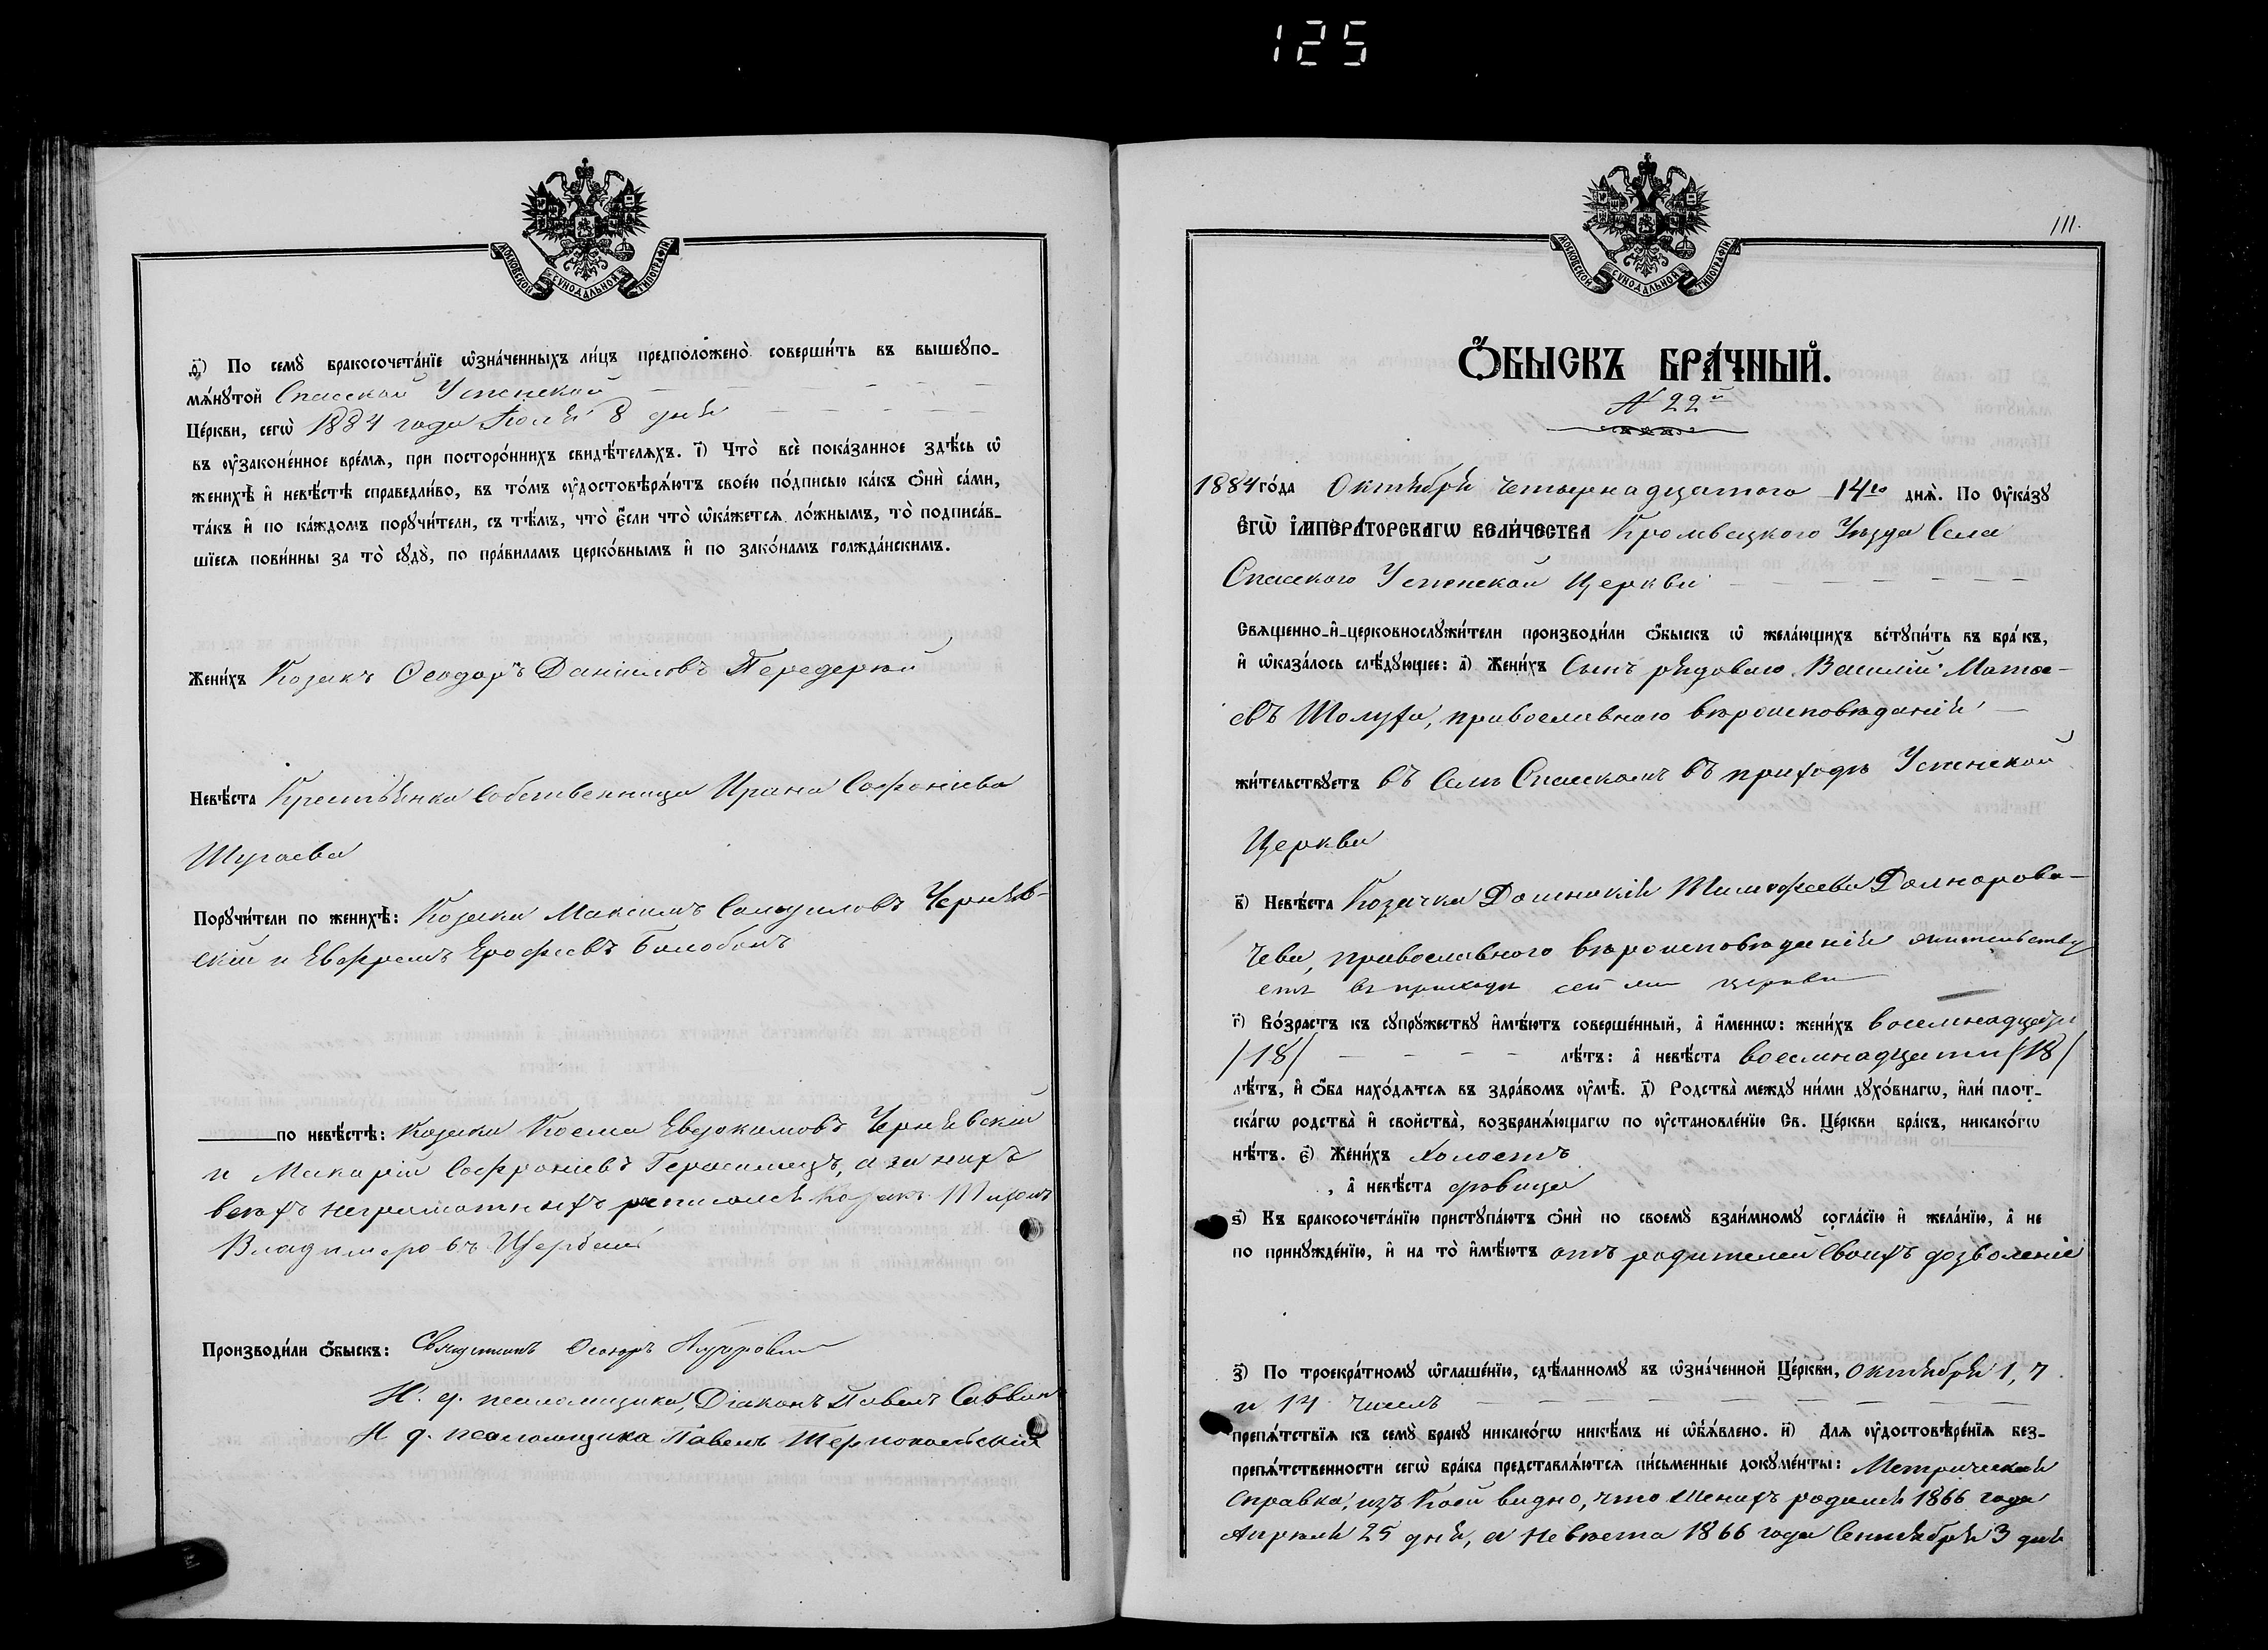 125
МОСКОВСКОЙ СѴНОДАЛЬНОЙ ТИПОГРАФІИ
д҃і) По семꙋ̀ бракосочета́нїе ѡ҆зна́ченныхъ ли́цъ предполо́жено̀ соверши́ть въ вышеꙋпо-
мѧ́нꙋтой Спасской Успенской
Це́ркви, сегѡ̀ 1884 года Іюля 8 дня
въ ᲂу҆законе́нное вре́мѧ, при посторо́ннихъ свидѣ́телѧхъ. і҃) Что̀ всѐ пока́занное здѣ́сь ѡ҆
женихѣ̀ и҆ невѣ́стѣ справедли́во, въ то́мъ ᲂу҆достовѣрѧ́ютъ свое́ю по́дписью ка́къ ѻ҆нѝ са́ми,
та́къ и҆ по ка́ждомъ порꙋчи́тели, съ тѣ́мъ, что̀ є҆́сли что̀ ѡ҆ка́жетсѧ ло́жнымъ, то̀ подписа́в-
шїесѧ пови́нны за то̀ сꙋдꙋ̀, по пра́виламъ церко́внымъ и҆ по зако́намъ гражда́нскимъ.
Жени́хъ Козакъ Ѳеодоръ Даніиловъ Передерій
Невѣ́ста Крестьянка собственница Ирина Софроніева
Шугаева
Порꙋчи́тели по женихѣ̀: Козаки Максимъ Самуиловъ Черняв-
скій и Евфремъ Ерофеевъ Балобонъ
по невѣ́стѣ: Козаки Косма Евдокимовъ Чернявскій
и Макарій Софроніевъ Герасимецъ, а за нихъ
всехъ неграмотныхъ росписался козакъ Тихонъ
Владимеровъ Щербакъ
Производи́ли ѻ҆́быскъ: Священникъ Ѳеодоръ
И. д. псаломщика, Діаконъ Павелъ Саввин
И д. псаломщика Павелъ Тернопольскій
МОСКОВСКОЙ СѴНОДАЛЬНОЙ ТИПОГРАФІИ
111.
Ѻ҆́БЫСКЪ БРА́ЧНЫЙ.
№ 22й
1884 го́да Октября четырнадцатого 14го днѧ̀. По Оу҆ка́зꙋ
Є҆ГѠ̀ И҆МПЕРА́ТОРСКАГѠ ВЕЛИ́ЧЕСТВА Кролевецкого Уѣзда Села
Спасского Успенской Церкви
Свѧще́нно-и҆-церковнослꙋжи́тели производи́ли ѻ҆́быскъ ѡ҆ жела́ющихъ встꙋпи́ть въ бра́къ,
и҆ ѡ҆каза́лось слѣ́дꙋющее: а҃) Жени́хъ Сынъ рядового Василій Матѳе-
евъ Шолуха, православного вѣроисповѣданія
жи́тельствꙋетъ въ Селѣ Спасскомъ въ приходѣ Успенской
Церкви
в҃) Невѣ́ста Козачка Домникія Тимофеева Долногрова-
чева, православного вѣроисповѣданія жительству
етъ въ приходѣ сей же церкви
г҃) Во́зрастъ къ сꙋпрꙋ́жествꙋ и҆мѣ́ютъ соверше́нный, а҆ и҆́меннѡ: жени́хъ восемнадцати
/18/ лѣ́тъ: а҆ невѣ́ста восемнадцати /18/
лѣ́тъ, и҆ ѻ҆́ба нахо́дѧтсѧ въ здра́вомъ ᲂу҆мѣ̀. д҃) Родства̀ междꙋ ни́ми дꙋхо́внагѡ, и҆лѝ плот-
ска́гѡ родства̀ и҆ свойства̀, возбранѧ́ющагѡ по ᲂу҆становле́нїю Св. Це́ркви бра́къ, никако́гѡ
нѣ́тъ. є҃) Жени́хъ холостъ
, а҆ невѣ́ста дѣвица
ѕ҃) Къ бракосочета́нїю пристꙋпа́ютъ ѻ҆нѝ по своемꙋ̀ взаи́мномꙋ согла́сїю и҆ жела́нїю, а҆ не
по принꙋжде́нїю, и҆ на то̀ и҆мѣ́ютъ отъ родителей своихъ дозволеніе
з҃) По троекра́тномꙋ ѡ҆глаше́нїю, сдѣ́ланномꙋ въ ѡ҆зна́ченной Це́ркви, Октября 1, 7
и 14 чиселъ
препѧ́тствїѧ къ семꙋ̀ бракꙋ никако́гѡ никѣ́мъ не ѡ҆б̾ѧ́влено. и҃) Длѧ ᲂу҆достовѣре́нїѧ без-
препѧ́тственности сегѡ̀ бра́ка представлѧ́ютсѧ пи́сьменные докꙋме́нты: Метрическая
справка, изъ коей видно, что женихъ родился 1866 года
Апрѣля 25 дня, а невѣста 1866 года Сентября 3 дня